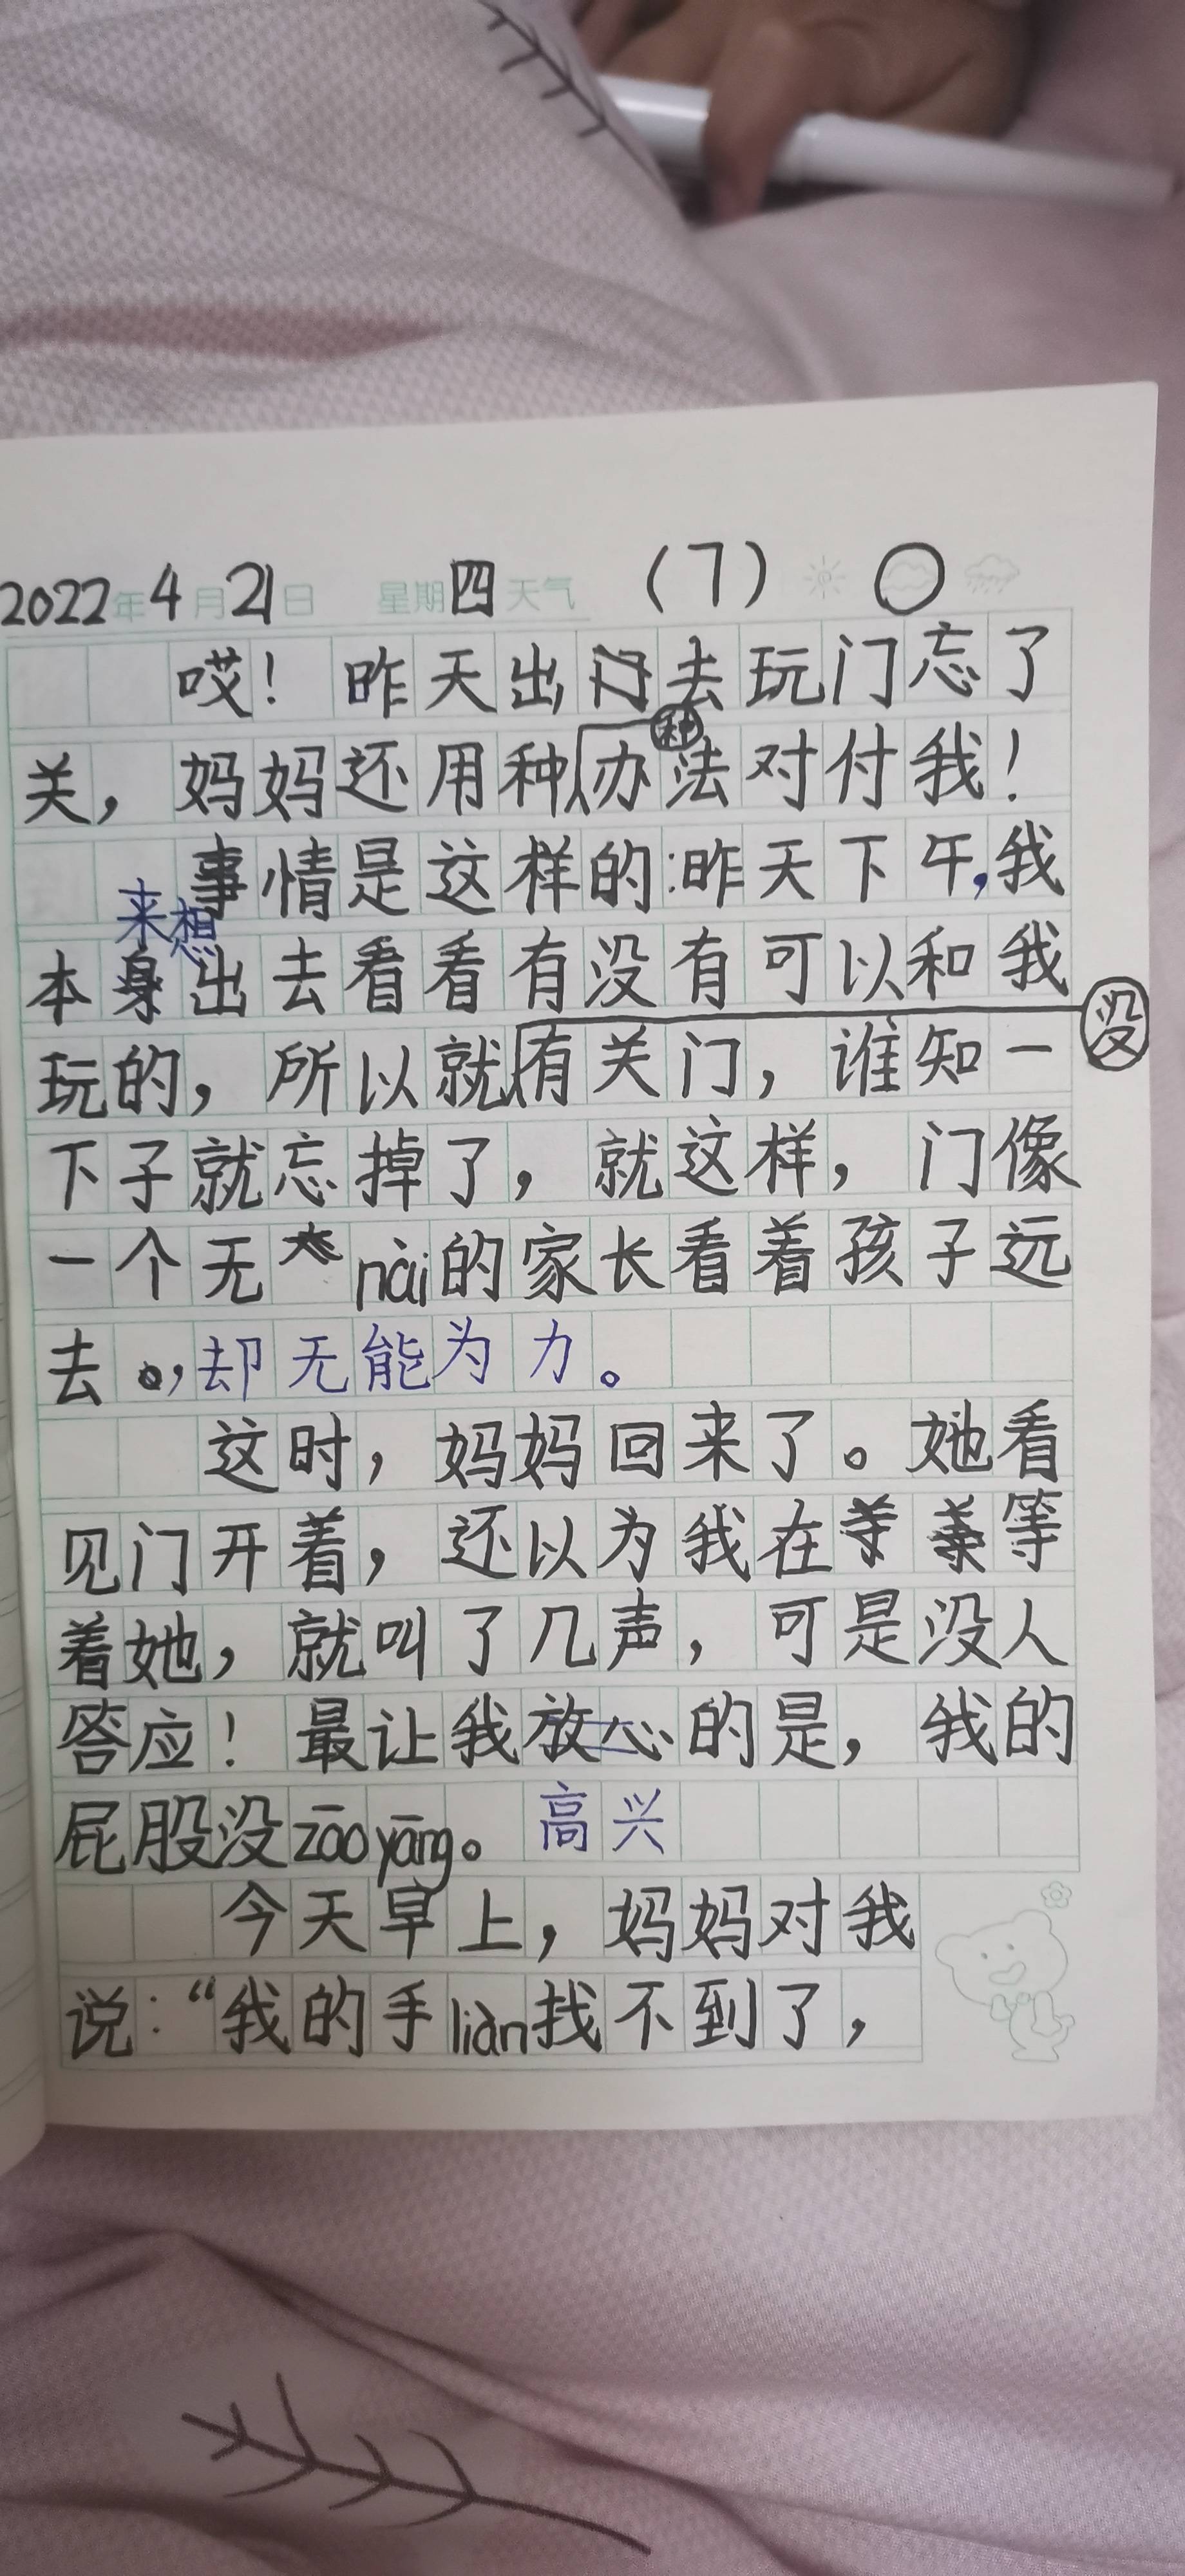 2022年4月21日 星期四天气 (7)
哎！昨天出门去玩门忘了
种
关，妈妈还用种办法对付我！
事情是这样的：昨天下午，我
来想
本身出去看看有没有可以和我
没
玩的，所以就有关门，谁知一
下子就忘掉了，就这样，门像
一个无nài的家长看着孩子远
去。，却无能为力。
这时，妈妈回来了。她看
见门开着，还以为我在等
着她，就叫了几声，可是没人
答应！最让我放心的是，我的
屁股没zāo yāng。高兴
今天早上，妈妈对我
说：“我的手liàn找不到了，